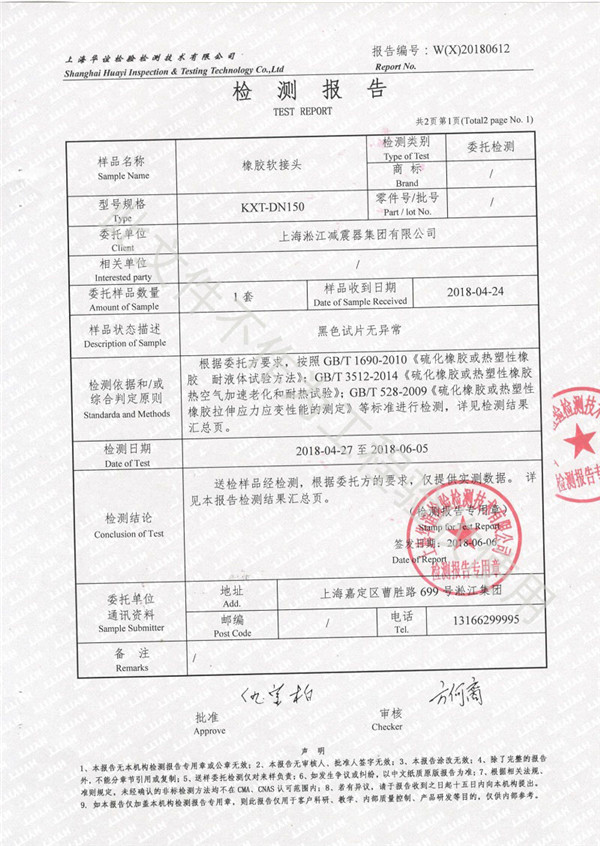 上海华谊检验检测技术有限公司
Shanghai Huayi Inspection & Testing Technology Co.,Ltd
报告编号：W(X)20180612
Report No.
检 测 报 告
TEST REPORT
共2页 第1页(Total2 page No. 1)
样品名称
Sample Name
橡胶软接头
检测类别
Type of Test
委托检测
商 标
Brand
/
型号规格
Type
KXT-DN150
零件号/批号
Part / lot No.
/
委托单位
Client
上海淞江减震器集团有限公司
相关单位
Interested party
/
委托样品数量
Amount of Sample
1 套
样品收到日期
Date of Sample Received
2018-04-24
样品状态描述
Description of Sample
黑色试片无异常
检测依据和/或
综合判定原则
Standarda and Methods
根据委托方要求，按照 GB/T 1690-2010《硫化橡胶或热塑性橡
胶 耐液体试验方法》；GB/T 3512-2014《硫化橡胶或热塑性橡胶
热空气加速老化和耐热试验》；GB/T 528-2009《硫化橡胶或热塑性
橡胶拉伸应力应变性能的测定》等标准进行检测，详见检测结果
汇总页。
检测日期
Date of Test
2018-04-27 至 2018-06-05
检测结论
Conclusion of Test
送检样品经检测，根据委托方的要求，仅提供实测数据。 详
见本报告检测结果汇总页。
（检测报告专用章）
Stamp for Test Report
签发日期：2018-06-06
Date of Report
检测报告专用章
委托单位
通讯资料
Sample Submitter
地址
Add.
上海嘉定区曹胜路 699 号淞江集团
邮编
Post Code
/
电话
Tel.
13166299995
备 注
Remarks
/
批准
Approve
审核
Checker
声 明
1、本报告无本机构检测报告专用章或公章无效；2、本报告无审核人、批准人签字无效；3、本报告涂改无效；4、除了完整的报告
外，不能分章节引用或复制；5、送样委托检测仅对来样负责；6、如发生争议或纠纷，以中文纸质原版报告为准；7、根据相关法规、
准则规定，未经确认的非标检测方法均不在 CMA、CNAS 认可范围内；8、若有异议，请于报告收到之日起十五日内向本机构提出。
9. 如本报告仅加盖本机构检测报告专用章，则此报告仅用于客户科研、教学、内部质量控制、产品研发等目的，仅供内部参考。